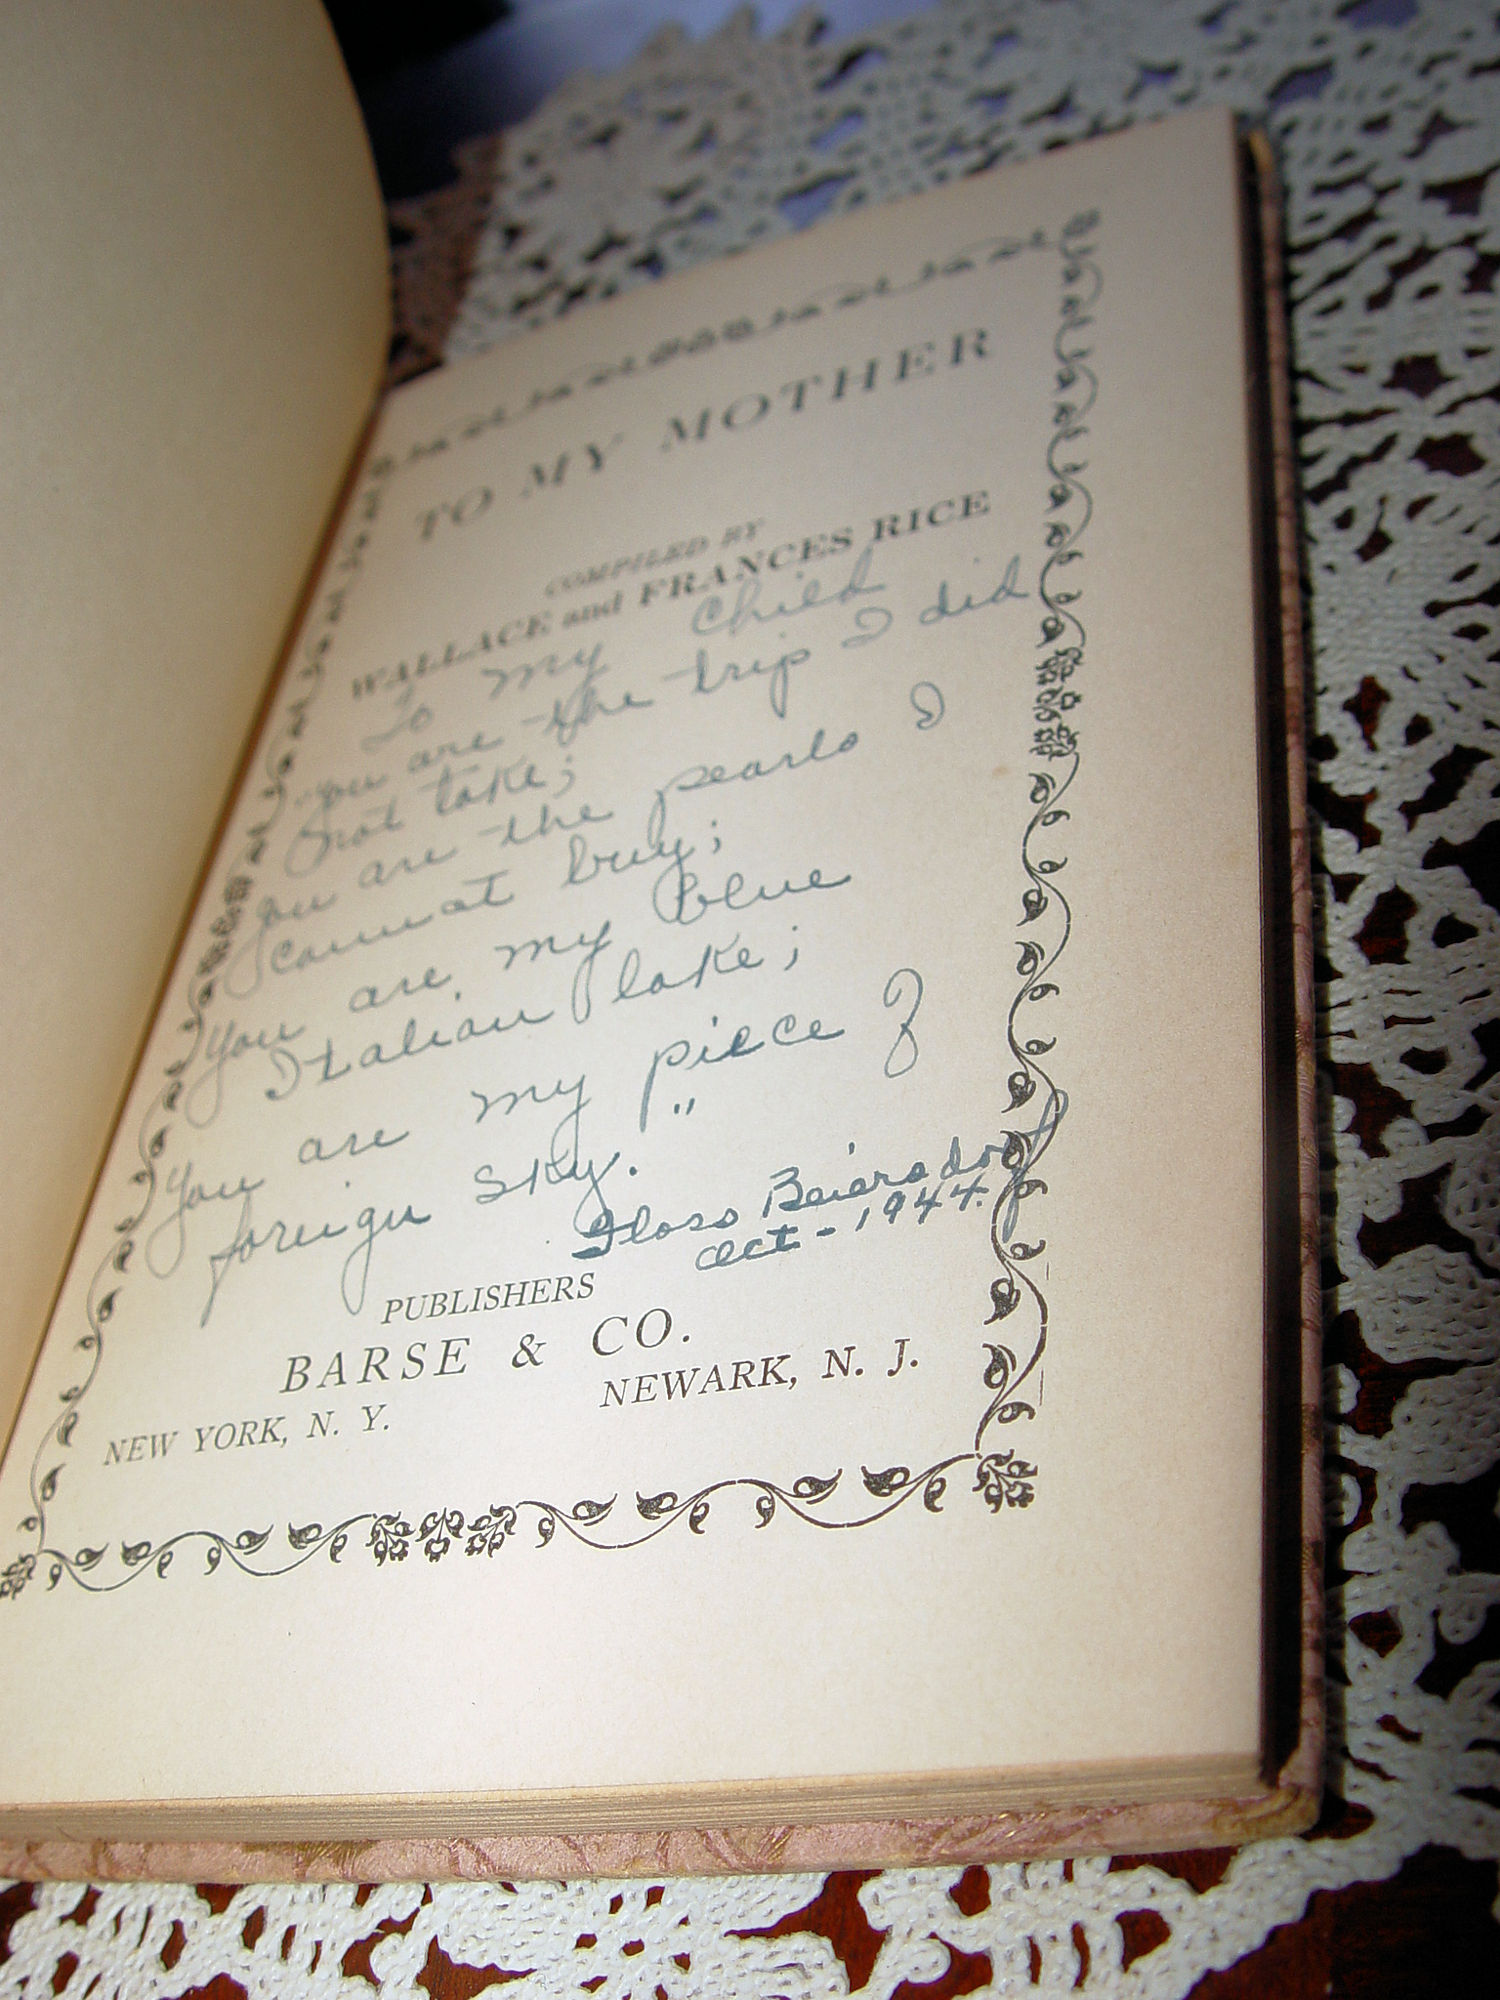 TO MY MOTHER
COMPILED BY
WALLACE and FRANCES RICE
To my child
"You are the trip I did
not take;
You are the pearls I
cannot buy;
You are my blue
Italian lake;
You are my piece of
foreign sky."
Beiersdorf
Oct - 1944.
PUBLISHERS
BARSE & CO.
NEW YORK, N. Y. NEWARK, N. J.